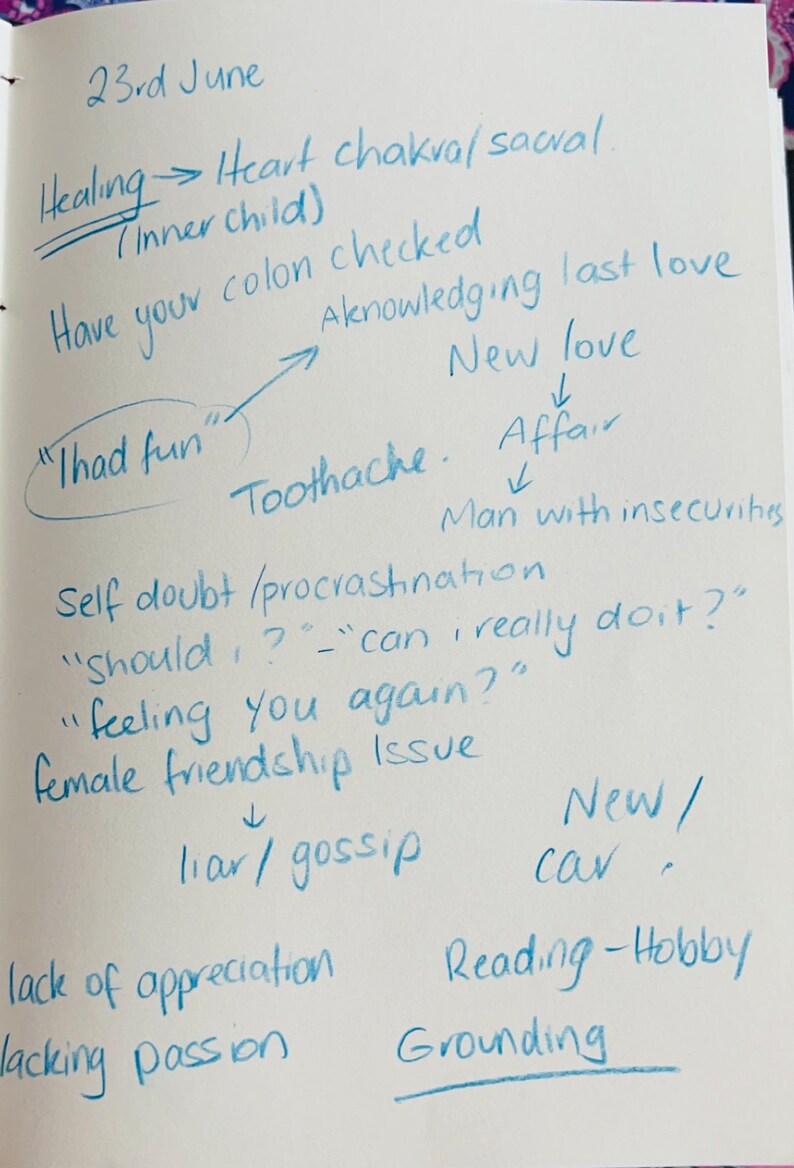 23rd June
Healing → Heart chakra/sacral.
(Inner child)
Have your colon checked
Aknowledging last love
New love
↓
"I had fun"
Affair
↓
Toothache.
Man with insecurities
Self doubt/procrastination
"should i?" - "can i really do it?"
"feeling you again?"
female friendship Issue
↓
liar/gossip
New/
car.
lack of appreciation
Reading - Hobby
lacking passion
Grounding